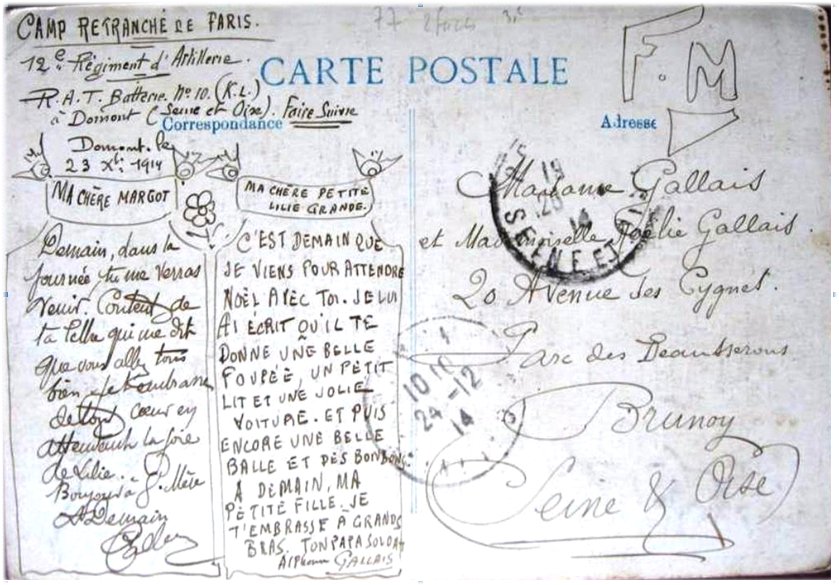 CAMP RETRANCHÉ DE PARIS.
12e Régiment d'Artillerie.
R.A.T. Batterie. No 10. (K.L.)
à Domont (Seine et Oise). Faire Suivre
77
CARTE POSTALE
F.M
Correspondance
Adresse
Domont. le
23 Xbre 1914
MA CHÈRE MARGOT
Demain, dans la
journée tu me verras
venir. Content de
ta lettre qui me dit
que vous allez tous
bien je t'embrasse
de tout cœur en
attendant la joie
de Lilie.
Bonjour à G. Mère
A Demain
MA CHÈRE PETITE
LILIE GRANDE.
C'EST DEMAIN QUE
JE VIENS POUR ATTENDRE
NOËL AVEC TOI. JE LUI
AI ÉCRIT QU'IL TE
DONNE UNE BELLE
POUPÉE, UN PETIT
LIT ET UNE JOLIE
VOITURE. ET PUIS
ENCORE UNE BELLE
BALLE ET DES BONBONS.
A DEMAIN, MA
PETITE FILLE. JE
T'EMBRASSE A GRANDS
BRAS. TON PAPA SOLDAT
Alphonse GALLAIS
Madame Gallais
et Mademoiselle Gallais.
20 Avenue des Cygnes.
Parc des Beausserons
Brunoy
Seine & Oise
14
SEINE ET OISE
10
24-12
14